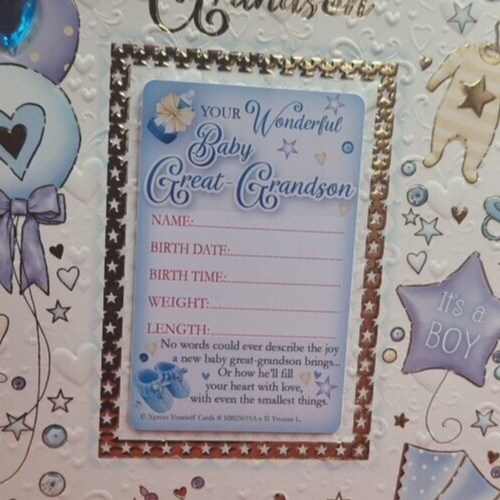 Grandson
YOUR Wonderful
Baby
Great-Grandson
NAME:
BIRTH DATE:
BIRTH TIME:
WEIGHT:
LENGTH:
No words could ever describe the joy
a new baby great-grandson brings...
Or how he'll fill
your heart with love,
with even the smallest things.
© Xpress Yourself Cards # MB25039A-e © Yvonne L.
It's a
BOY